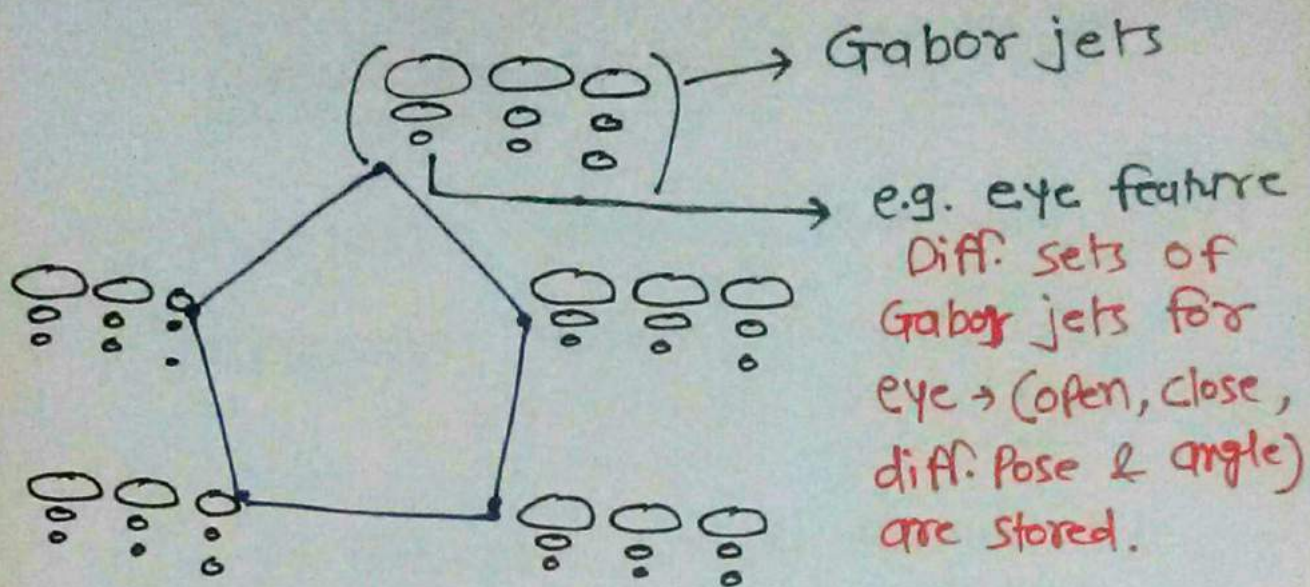 Gabor jets
e.g. eye feature
Diff. sets of
Gabor jets for
eye → (open, close,
diff. Pose & angle)
are stored.